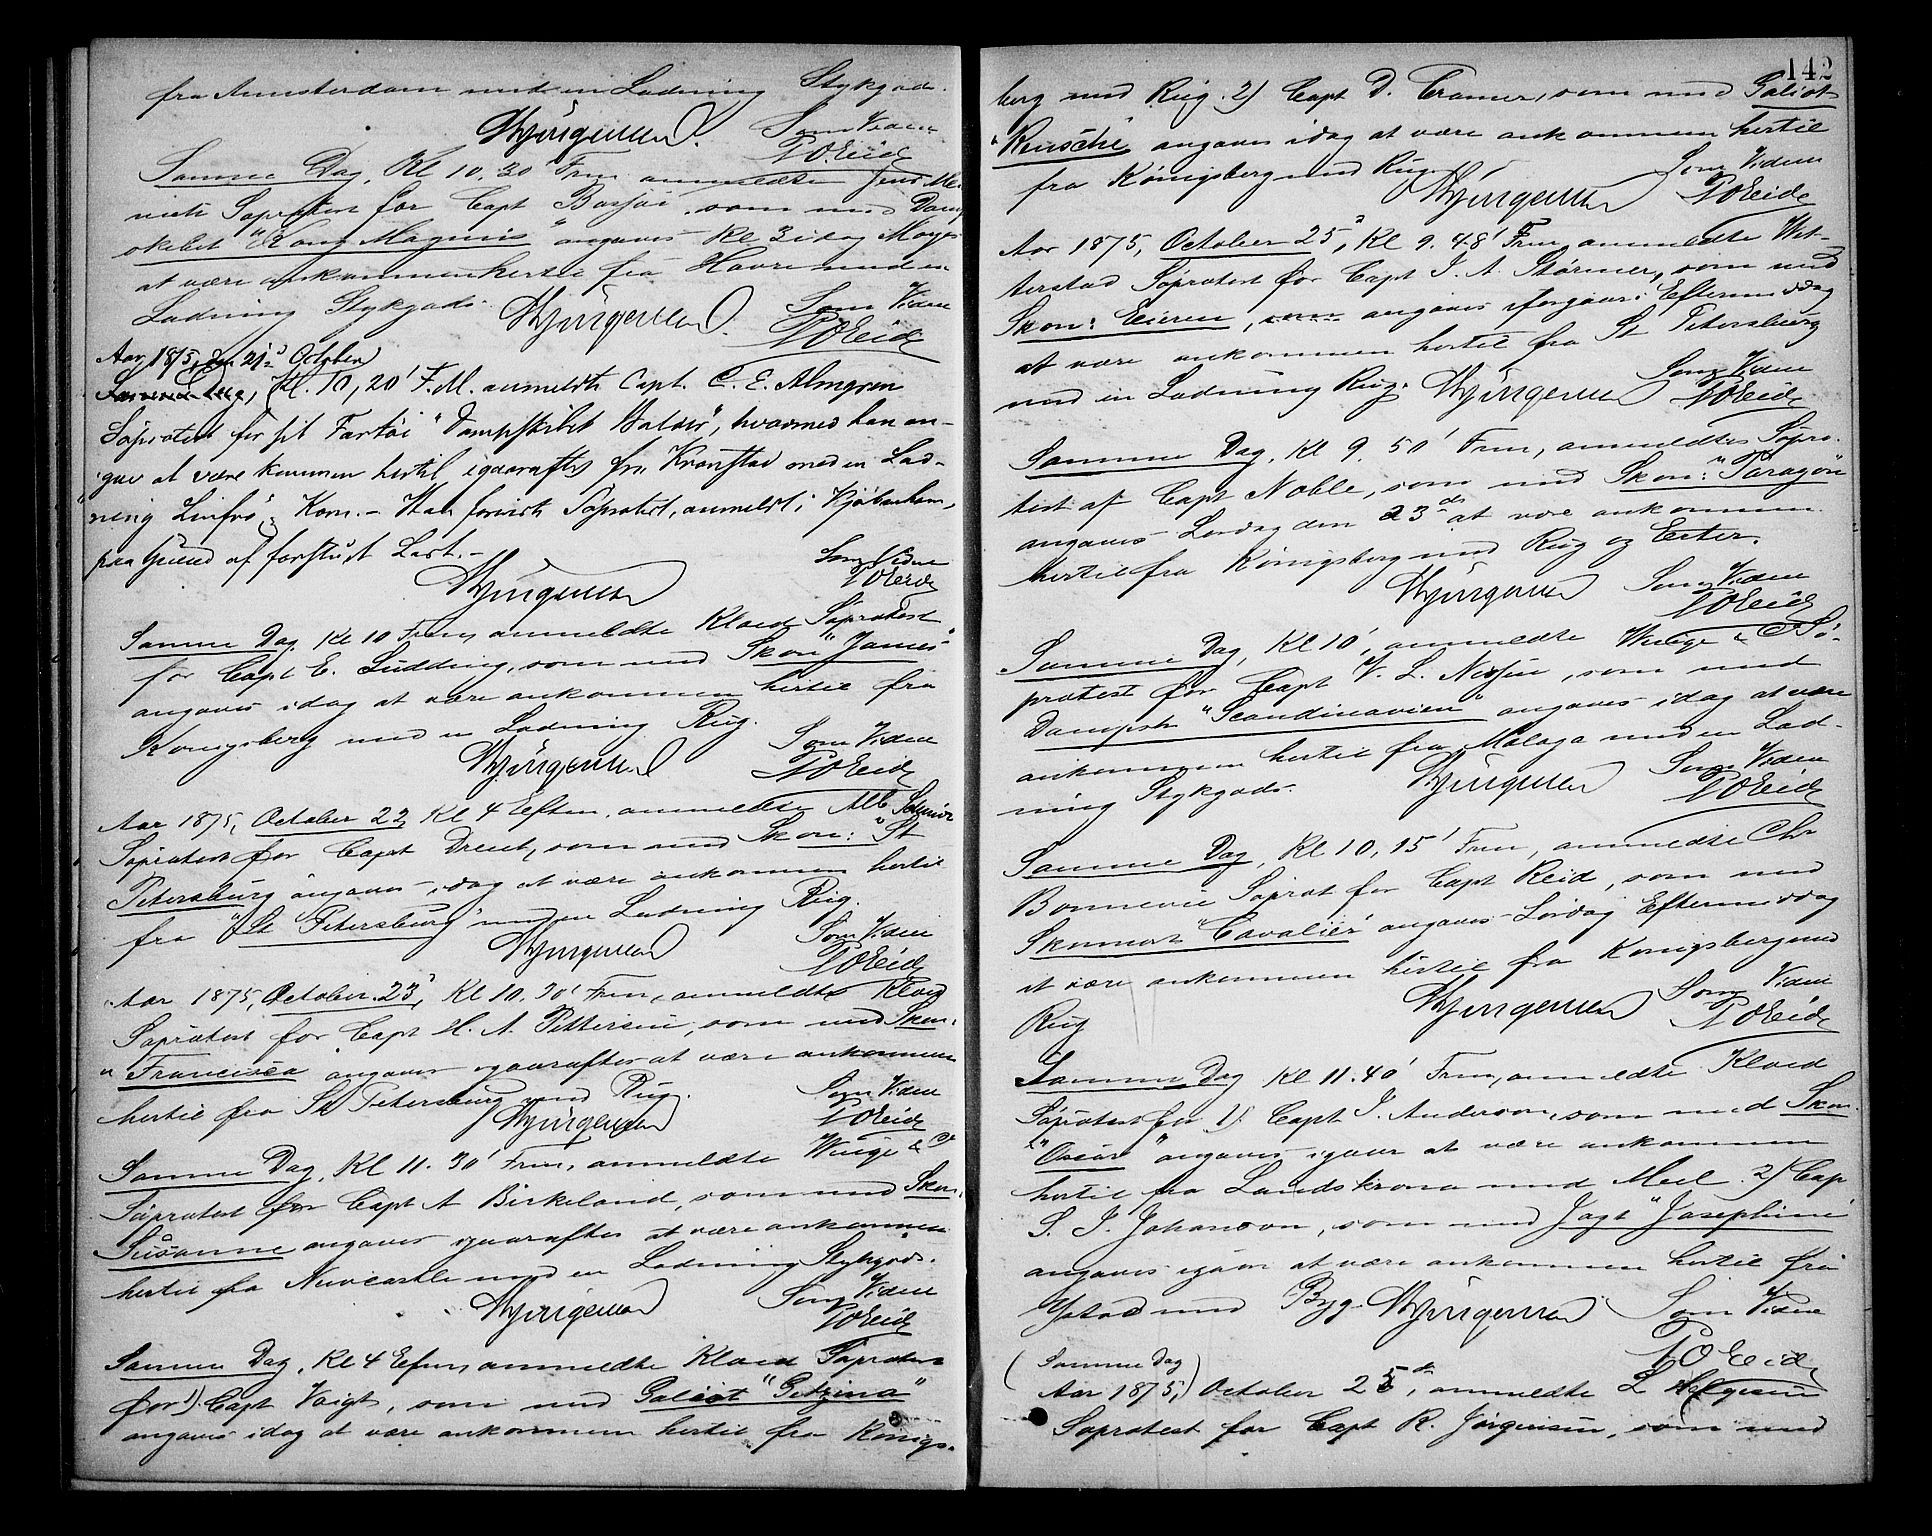 fra Amsterdam med en Ladning Stykgods.
Som Vidne
P O Eide
Samme Dag, Kl 10.30 Frm anmeldte Jens Me-
Søprotest for Capt som med Damp
skibet "Kong Magnus" angaves Kl 3 idag Morges
at være ankommen hertil fra Havre med en
Ladning Stykgods. Som Vidne
P O Eide
Aar 1875, den 21de October
Kl. 10,20' F.M. anmeldte Capt. C. E. Almgren
Søprotest for sit Fartøi "Dampskibet Balder", hvormed han an-
gav at være kommen hertil igaaraftes fra Kronstad med en Lad-
ning Linfrø & Korn. - Søprotest, anmeldt i Kjøbenhavn,
paa Grund af forskudt Last. -
Som Vidne
P O Eide
Samme Dag Kl 10 Frm, anmeldte Kloed Søprotest
for Capt E. Ludding, som med Skon "James"
angaves idag at være ankommen hertil fra
Konigsberg med en Ladning Rug.
Som Vidne
P O Eide
Aar 1875, October 22, Kl 4 Eftm, anmeldte Alb
Søprotest for Capt Drent, som med Skon: "St
Petersburg angaves idag at være ankommen hertil
fra "St Petersburg" med en Ladning Rug.
Som Vidne
P O Eide
Aar 1875, October 23', Kl 10.30' Frm, anmeldte Kloed
Søprotest for Capt H. A. Pettersen, som med Skon.
"Francisca" angaves igaaraftes at være ankommen
hertil fra St Petersburg med Rug.
Som Vidne
P O Eide
Samme Dag, Kl 11.30' Frm, anmeldte Winge & Co
Søprotest for Capt A Birkeland, som med Skon.
Susanne angaves igaaraftes at være ankommen
hertil fra Newcastle med en Ladning Stykgods.
Som Vidne
P O Eide
Samme Dag, Kl 4 Eftm, anmeldte Kloed Søprotest
for 1) Capt Voigt, som med Galiot "Getzina"
angaves idag at være ankommen hertil fra Königs-
142
berg med Rug. 2) Capt D. Cramer, som med Galiot
" angaves idag at være ankommen hertil
fra Königsberg med Rug
Som Vidne
P O Eide
Aar 1875, October 25', Kl 9.48' Frm, anmeldte Wet-
terstad Søprotest for Capt J. A. Størmer, som med
Skon: Eieren, angaves iforgaars Eftermiddag
at være ankommen hertil fra St Petersburg
med en Ladning Rug. Som Vidne
P O Eide
Samme Dag, Kl 9.50' Frm, anmeldtes Søpro-
test af Capt Noble, som med Skon: "Paragon"
angaves Lørdag den 23de at være ankommen
hertil fra Königsberg med Rug og Erter.
Som Vidne
P O Eide
Samme Dag, Kl 10', anmeldte Winge & Co Sø-
protest for Capt V. L. Nissen, som med
Dampsk "Scandinavien" angaves idag at være
ankommen hertil fra Malaga med en Lad-
ning Stykgods.
Som Vidne
P O Eide
Samme Dag, Kl 10,15' Frm, anmeldte Chr
Bonnevie Søprot for Capt Reid, som med
Skonnert "Cavalier" angaves Lørdag Eftermiddag
at være ankommen hertil fra Konigsberg med
Rug
Som Vidne
P O Eide
Samme Dag Kl 11.40' Frm, anmeldte Kloed
Søprotest for 1) Capt J. Anderson, som med Skon.
"Oscar" angaves igaar at være ankommen
hertil fra Landskrona med Meel. 2) Cap
S. J. Johanson, som med Jagt "Josephine"
angaves igaar at være ankommen hertil fra
Ystad med Byg. Som Vidne
P O Eide
(Samme Dag
Aar 1875,) October 25de, anmeldte L Helgesen
Søprotest for Capt R. Jørgensen, som med